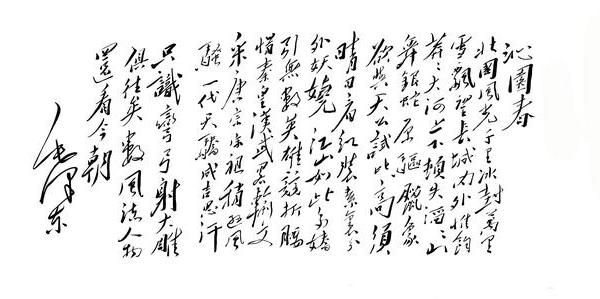 沁園春
北國風光千里冰封萬里
雪飄望長城內外惟餘
莽々大河上下頓失滔々山
舞銀蛇原驅臘象
欲與天公試比高須
晴日看紅裝素裹分
外妖嬈 江山如此多嬌
引無數英雄競折腰
惜秦皇漢武略輸文
采唐宗宋祖稍遜風
騷一代天驕成吉思汗
只識彎弓射大雕
俱往矣數風流人物
還看今朝
毛澤東